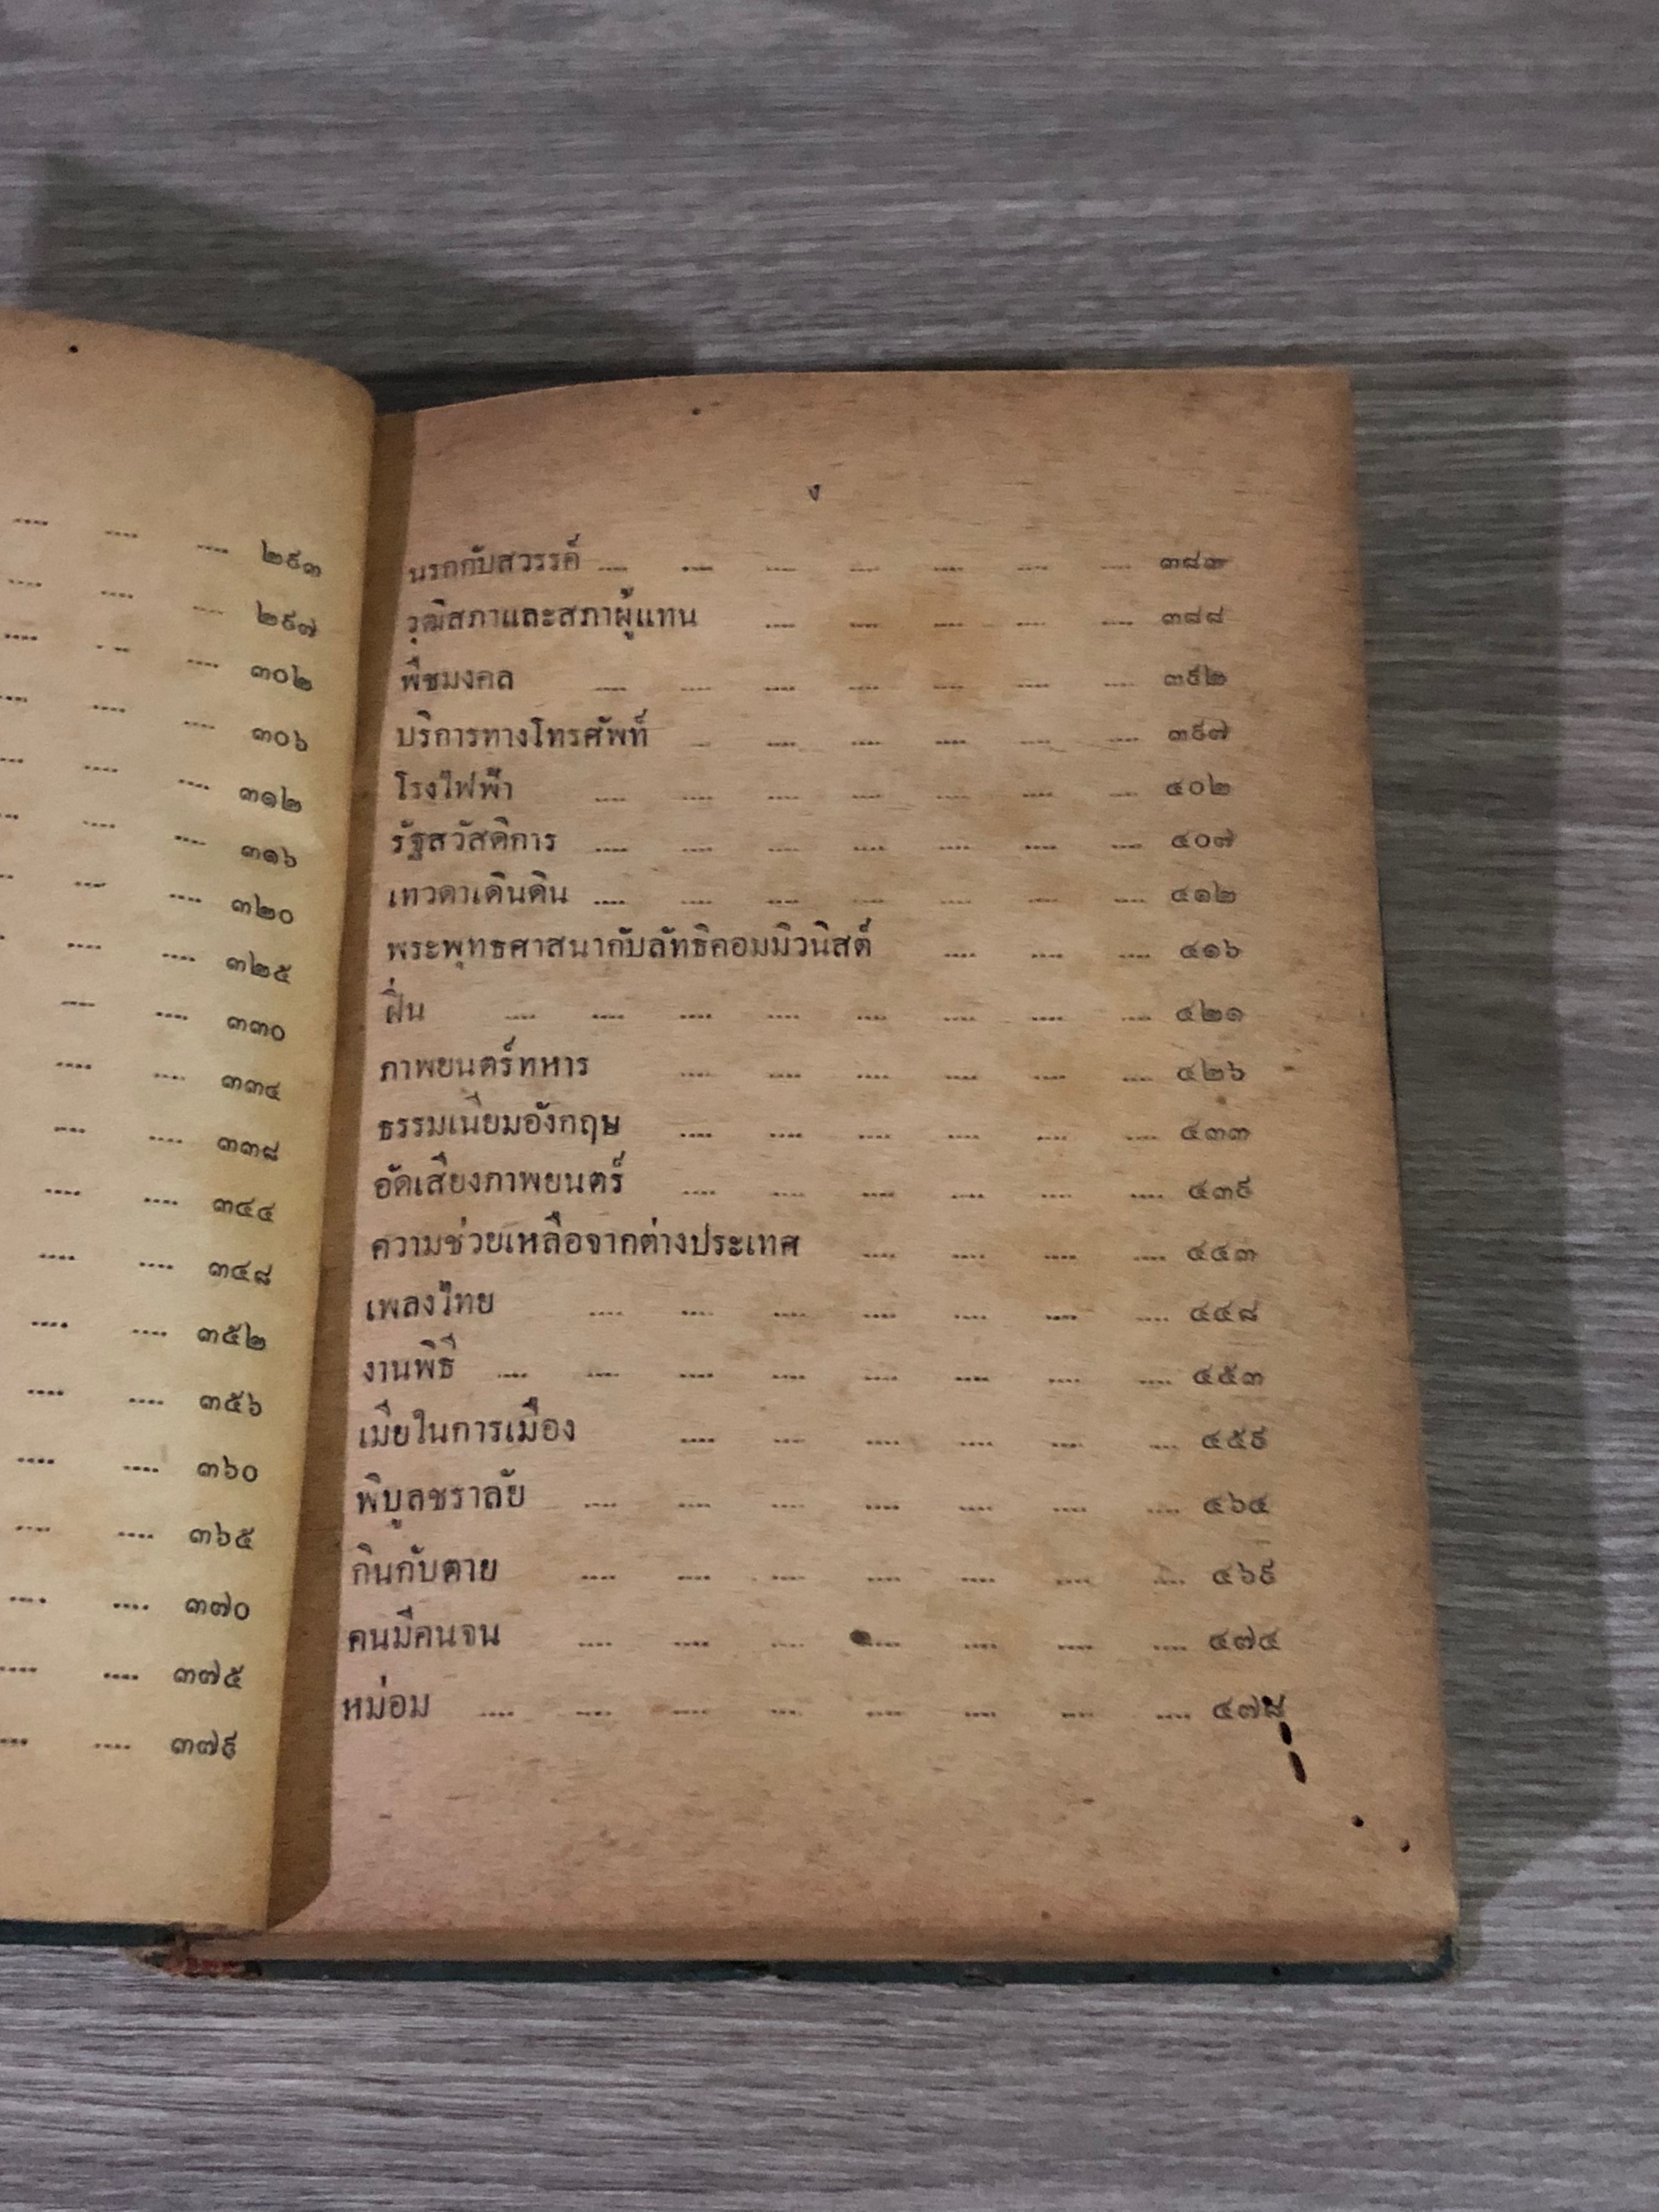 ๒๙๓
๒๙๗
๓๐๒
๓๐๖
๓๑๒
๓๑๖
๓๒๐
๓๒๕
๓๓๐
๓๓๔
๓๓๘
๓๔๔
๓๔๘
๓๕๒
๓๕๖
๓๖๐
๓๖๕
๓๗๐
๓๗๕
๓๗๙
ง
นรกกับสวรรค์ .... .... .... .... .... .... ....
วุฒิสภาและสภาผู้แทน .... .... .... .... .... ๓๘๘
พืชมงคล .... .... .... .... .... .... .... ๓๙๒
บริการทางโทรศัพท์ .... .... .... .... .... .... ๓๙๗
โรงไฟฟ้า .... .... .... .... .... .... .... ๔๐๒
รัฐสวัสดิการ .... .... .... .... .... .... .... ๔๐๗
เทวดาเดินดิน .... .... .... .... .... .... .... ๔๑๒
พระพุทธศาสนากับลัทธิคอมมิวนิสต์ .... .... .... ๔๑๖
ฝิ่น .... .... .... .... .... .... .... .... ๔๒๑
ภาพยนตร์ทหาร .... .... .... .... .... .... ๔๒๖
ธรรมเนียมอังกฤษ .... .... .... .... .... .... ๔๓๓
อัดเสียงภาพยนตร์ .... .... .... .... .... .... ๔๓๙
ความช่วยเหลือจากต่างประเทศ .... .... .... .... ๔๔๓
เพลงไทย .... .... .... .... .... .... .... ๔๔๘
งานพิธี .... .... .... .... .... .... .... .... ๔๕๓
เมียในการเมือง .... .... .... .... .... .... ๔๕๙
พิบูลชราลัย .... .... .... .... .... .... .... ๔๖๔
กินกับตาย .... .... .... .... .... .... .... ๔๖๙
คนมีคนจน .... .... .... .... .... .... .... ๔๗๔
หม่อม .... .... .... .... .... .... .... ....